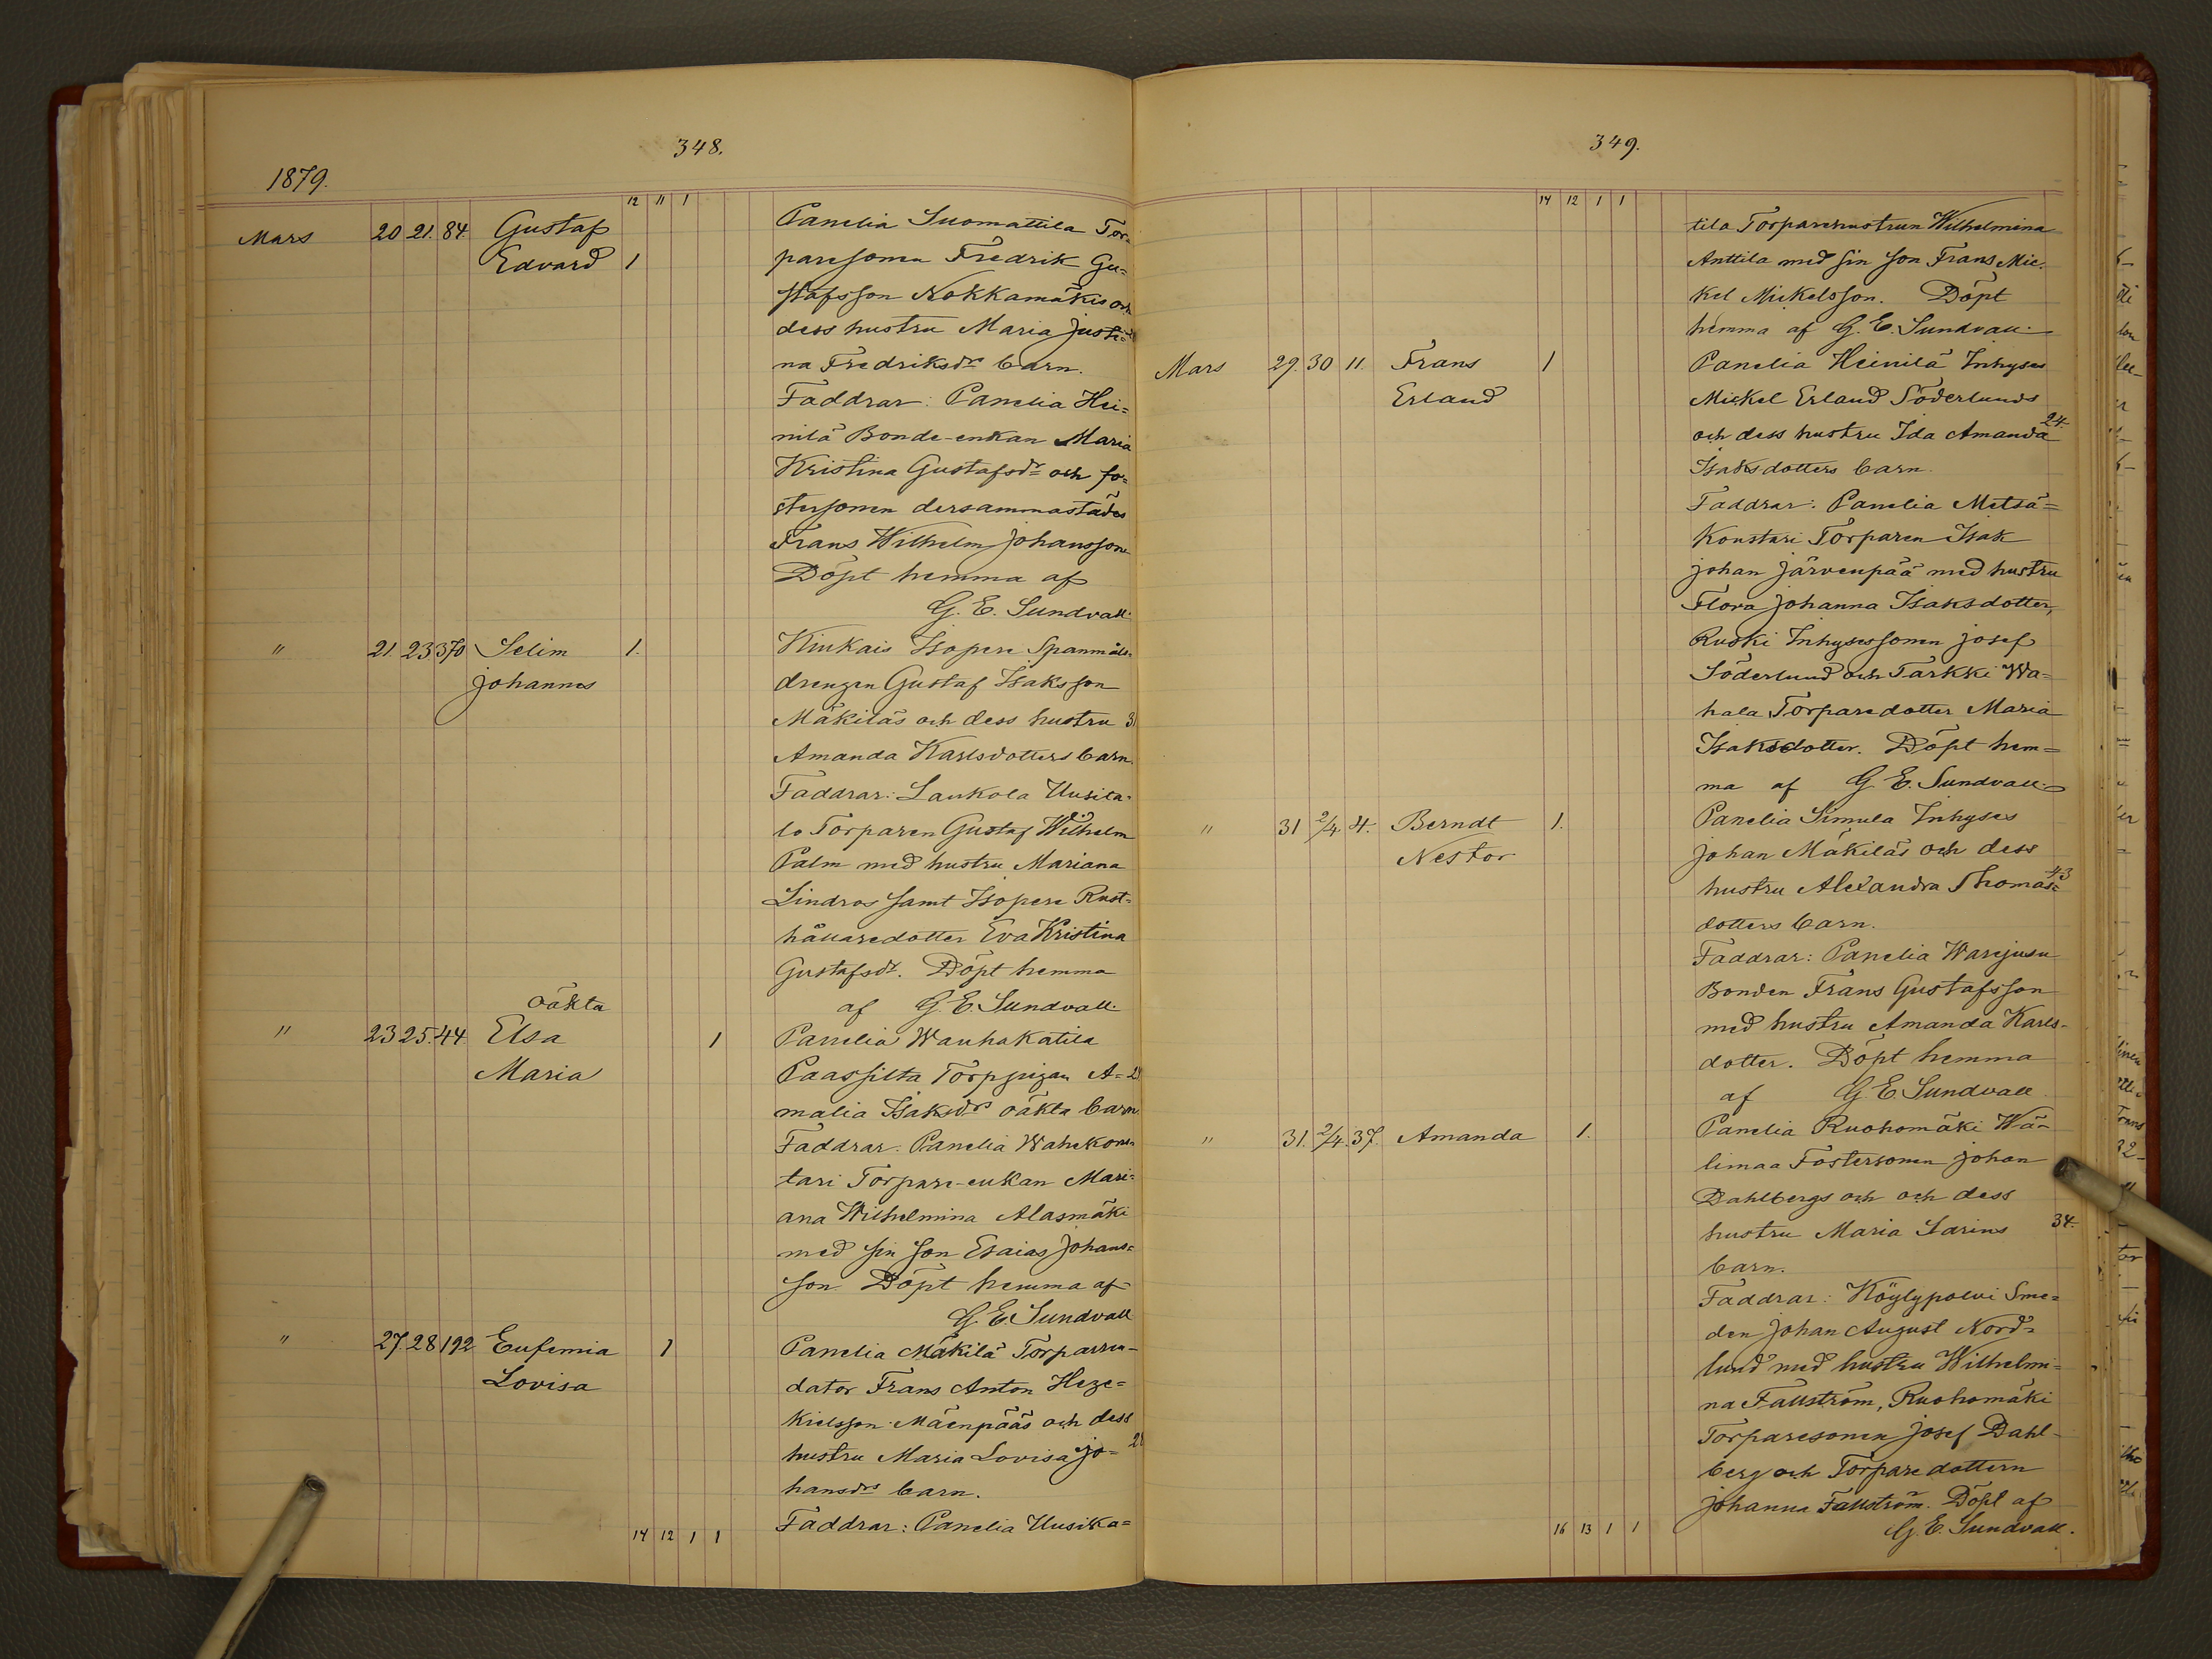 348.
1879.
12 11 1
Mars 20 21. 84. Gustaf Panelia Suomattila Tor-
Edvard 1 paresonen Fredrik Gu=
stafsson Nokkamäkis och
dess hustru Maria Justi=
na Fredriksdrs barn.
Faddrar: Panelia Hei=
nilä Bonde-enkan Maria
Kristina Gustafsdr och fo=
stersonen dersammastädes
Frans Wilhelm Johansson
Döpt hemma af
G. E. Sundvall.
" 21. 23 370 Selim 1. Kiukais Isopere Spanmåls-
Johannes drengen Gustaf Isaksson
Mäkiläs och dess hustru 31
Amanda Karlsdotters barn.
Faddrar: Laukola Uusita-
lo Torparen Gustaf Wilhelm
Palm med hustru Mariana
Lindros samt Isopere Rust-
hållaredotter Eva Kristina
Gustafsdr. Döpt hemma
oäkta af G. E. Sundvall.
" 23 25. 44 Elsa 1 Panelia Wanhakatila
Maria Paassilta Torppigan A=
malia Isaksdrs oäkta barn.
Faddrar: Panelia Wahekons-
tari Torpare-enkan Mari=
ana Wilhelmina Alasmäki
med sin son Esaias Johans=
son Döpt hemma af
G. E. Sundvall
" 27. 28 192 Eufemia 1 Panelia Mäkilä Torparren-
Lovisa dator Frans Anton Heze=
kielsson Mäenpääs och dess
hustru Maria Lovisa Jo=
hansdrs barn.
14 12 1 1 Faddrar: Panelia Uusika=
349.
14 12 1 1
tila Torparehustrun Wilhelmina
Anttila med sin son Frans Mic-
kel Mickelsson. Döpt
hemma af G. E. Sundvall.
Mars 29. 30 11. Frans 1 Panelia Heinilä Inhyses
Erland Mickel Erland Söderlunds
och dess hustru Ida Amanda 24.
Isaksdotters barn.
Faddrar: Panelia Metsä=
konstari Torparen Isak
Johan Järvenpää med hustru
Flora Johanna Isaksdotter,
Ruski Inhysessonen Josef
Söderlund och Tarkki Wa=
hala Torparedotter Maria
Isaksdotter. Döpt hem=
ma af G. E. Sundvall.
" 31 2/4 4. Berndt 1. Panelia Simula Inhyses
Nestor Johan Mäkiläs och dess
hustru Alexandra Thomas= 43
dotters barn.
Faddrar: Panelia Warejusu
Bonden Frans Gustafsson
med hustru Amanda Karls-
dotter. Döpt hemma
af G. E. Sundvall
" 31. 2/4. 37. Amanda 1. Panelia Ruohomäki Wä-
limaa Fostersonen Johan
Dahlbergs och och dess
hustru Maria Sarins 34.
barn.
Faddrar: Köylypolvi Sme=
den Johan August Nord=
lund med hustru Wilhelmi=
na Fallström, Ruohomäki
Torparesonen Josef Dahl-
berg och Torparedottern
Johanna Fallström. Döpt af
16 13 1 1 G. E. Sundvall.